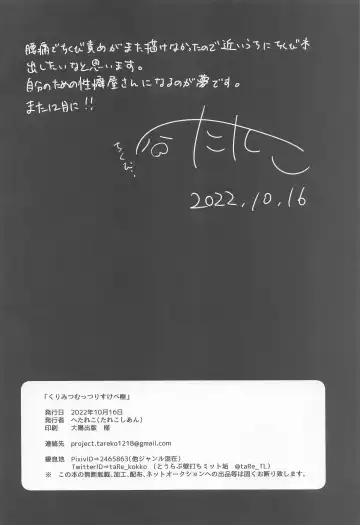 腰痛でちくび責めがまた描けなかったので近いうちにちくび本
出したいなと思います。
自分のための性癖屋さんになるのが夢です。
また12月に!!
ちくび…
へたれこ
2022.10.16
「くりみつむっつりすけべ樹」
発行日 2022年10月16日
発行者 へたれこ(たれこしあん)
印刷 大陽出版 様
連絡先 project.tareko1218@gmail.com
棲息地 PixivID⇒2465863(他ジャンル混在)
TwitterID⇒taRe_kokko (とうらぶ壁打ちミット垢 @taRe_TL)
※ この本の無断転載、加工、配布、ネットオークションへの出品等は固くお断り致します。